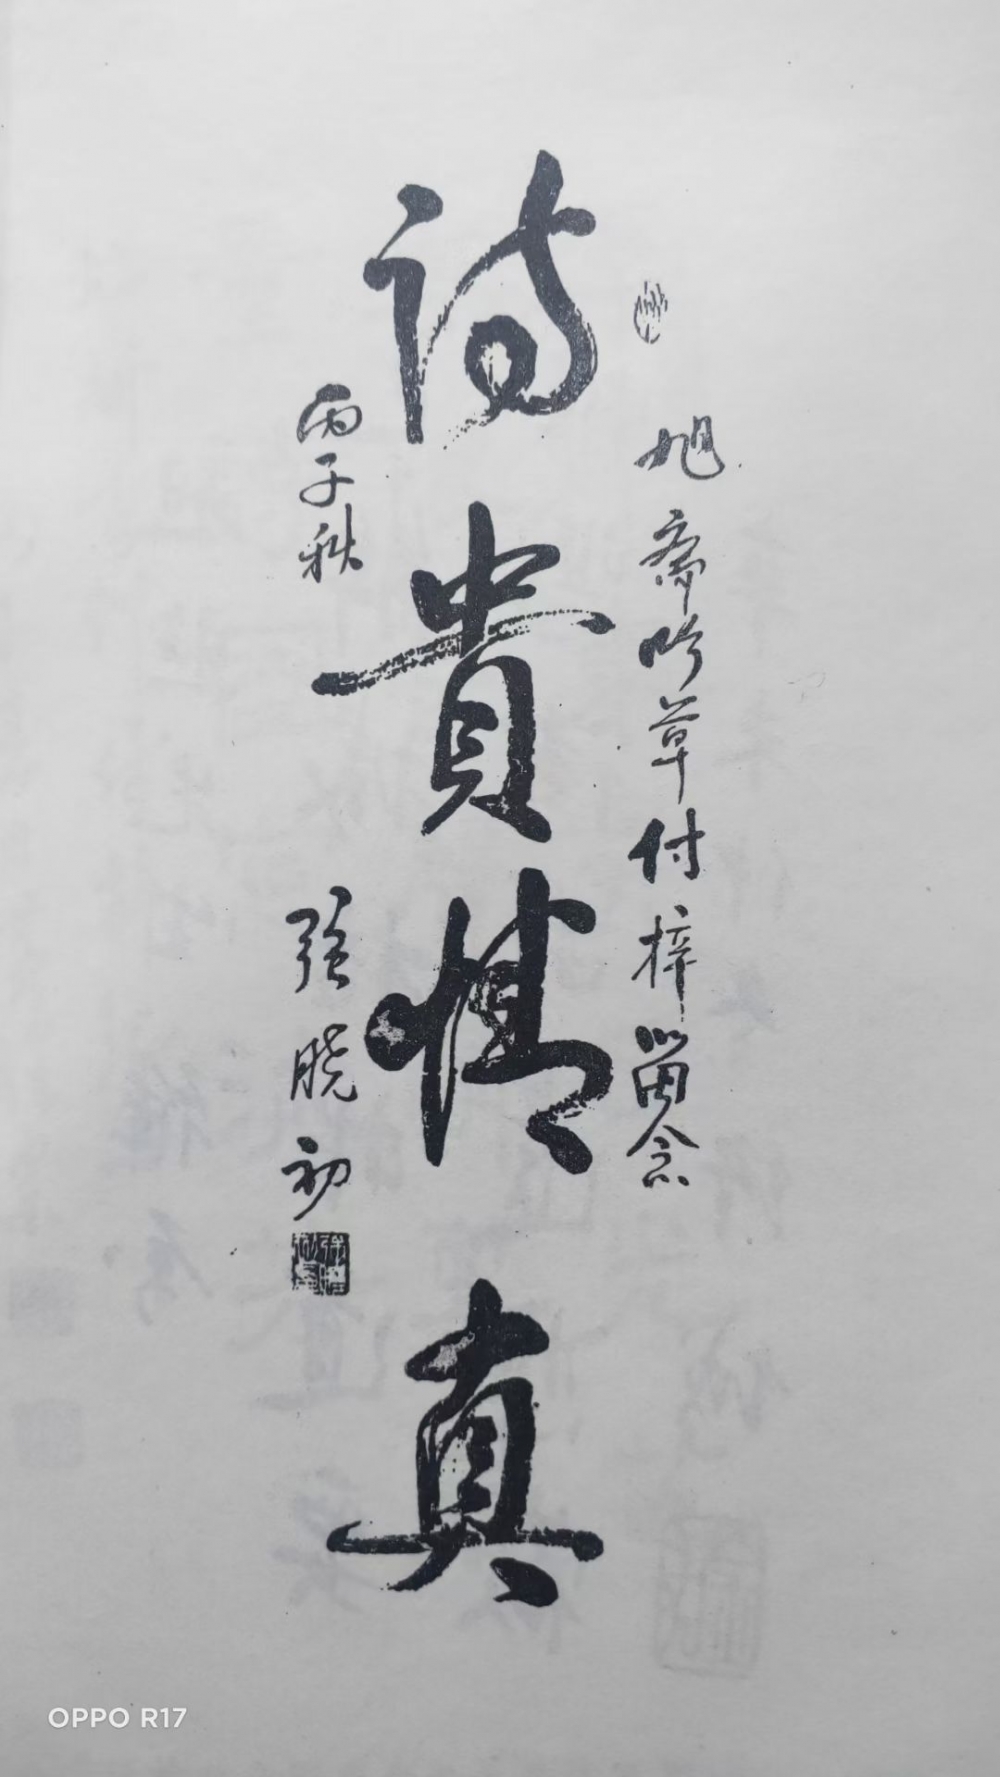 旭斋吟草付梓留念
诗貴情真
丙子秋
强晓初
OPPO R17